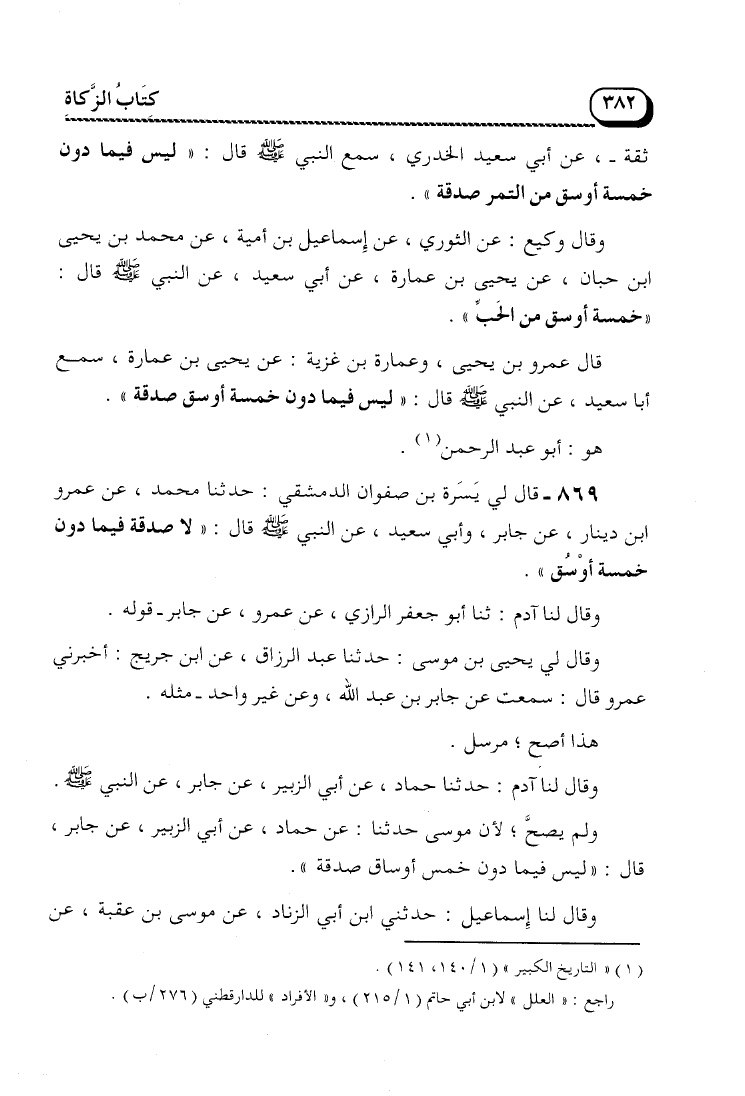 ٣٨٢ كتَابُ الزَّكاة
ثقة ـ ، عن أبي سعيد الخدري ، سمع النبي ﷺ قال : « ليس فيما دون
خمسة أوسق من التمر صدقة » .
وقال وكيع : عن الثوري ، عن إسماعيل بن أمية ، عن محمد بن يحيى
ابن حبان ، عن يحيى بن عمارة ، عن أبي سعيد ، عن النبي ﷺ قال :
« خمسة أوسق من الحَبِّ » .
قال عمرو بن يحيى ، وعمارة بن غزية : عن يحيى بن عمارة ، سمع
أبا سعيد ، عن النبي ﷺ قال : « ليس فيما دون خمسة أوسق صدقة » .
هو : أبو عبد الرحمن(١) .
٨٦٩ ـ قال لي يَسَرة بن صفوان الدمشقي : حدثنا محمد ، عن عمرو
ابن دينار ، عن جابر ، وأبي سعيد ، عن النبي ﷺ قال : « لا صدقة فيما دون
خمسة أوْسُق » .
وقال لنا آدم : ثنا أبو جعفر الرازي ، عن عمرو ، عن جابر ـ قوله .
وقال لي يحيى بن موسى : حدثنا عبد الرزاق ، عن ابن جريج : أخبرني
عمرو قال : سمعت عن جابر بن عبد الله ، وعن غير واحد ـ مثله .
هذا أصح ؛ مرسل .
وقال لنا آدم : حدثنا حماد ، عن أبي الزبير ، عن جابر ، عن النبي ﷺ .
ولم يصحَّ ؛ لأن موسى حدثنا : عن حماد ، عن أبي الزبير ، عن جابر ،
قال : « ليس فيما دون خمس أوساق صدقة » .
وقال لنا إسماعيل : حدثني ابن أبي الزناد ، عن موسى بن عقبة ، عن
(١) « التاريخ الكبير » (١/ ١٤٠، ١٤١) .
راجع : « العلل » لابن أبي حاتم (١/ ٢١٥) ، و« الأفراد » للدارقطني (٢٧٦/ب) .